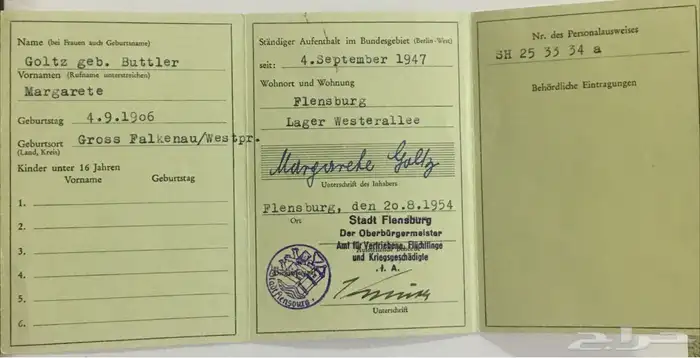 Name (bei Frauen auch Geburtsname)
Goltz geb. Buttler
Vornamen (Rufname unterstreichen)
Margarete
Geburtstag 4.9.1906
Geburtsort Gross Falkenau/Westpr.
(Land, Kreis)
Kinder unter 16 Jahren
Vorname Geburtstag
1.
2.
3.
4.
5.
6.
Ständiger Aufenthalt im Bundesgebiet (Berlin-West)
seit: 4.September 1947
Wohnort und Wohnung
Flensburg
Lager Westerallee
Margarete Goltz
Unterschrift des Inhabers
Flensburg, den 20.8.1954
Ort
Stadt Flensburg
Der Oberbürgermeister
Amt für Vertriebene, Flüchtlinge
und Kriegsgeschädigte
.I.A.
Stadt Flensburg.
Unterschrift
Nr. des Personalausweises
SH 25 33 34 a
Behördliche Eintragungen
حراج